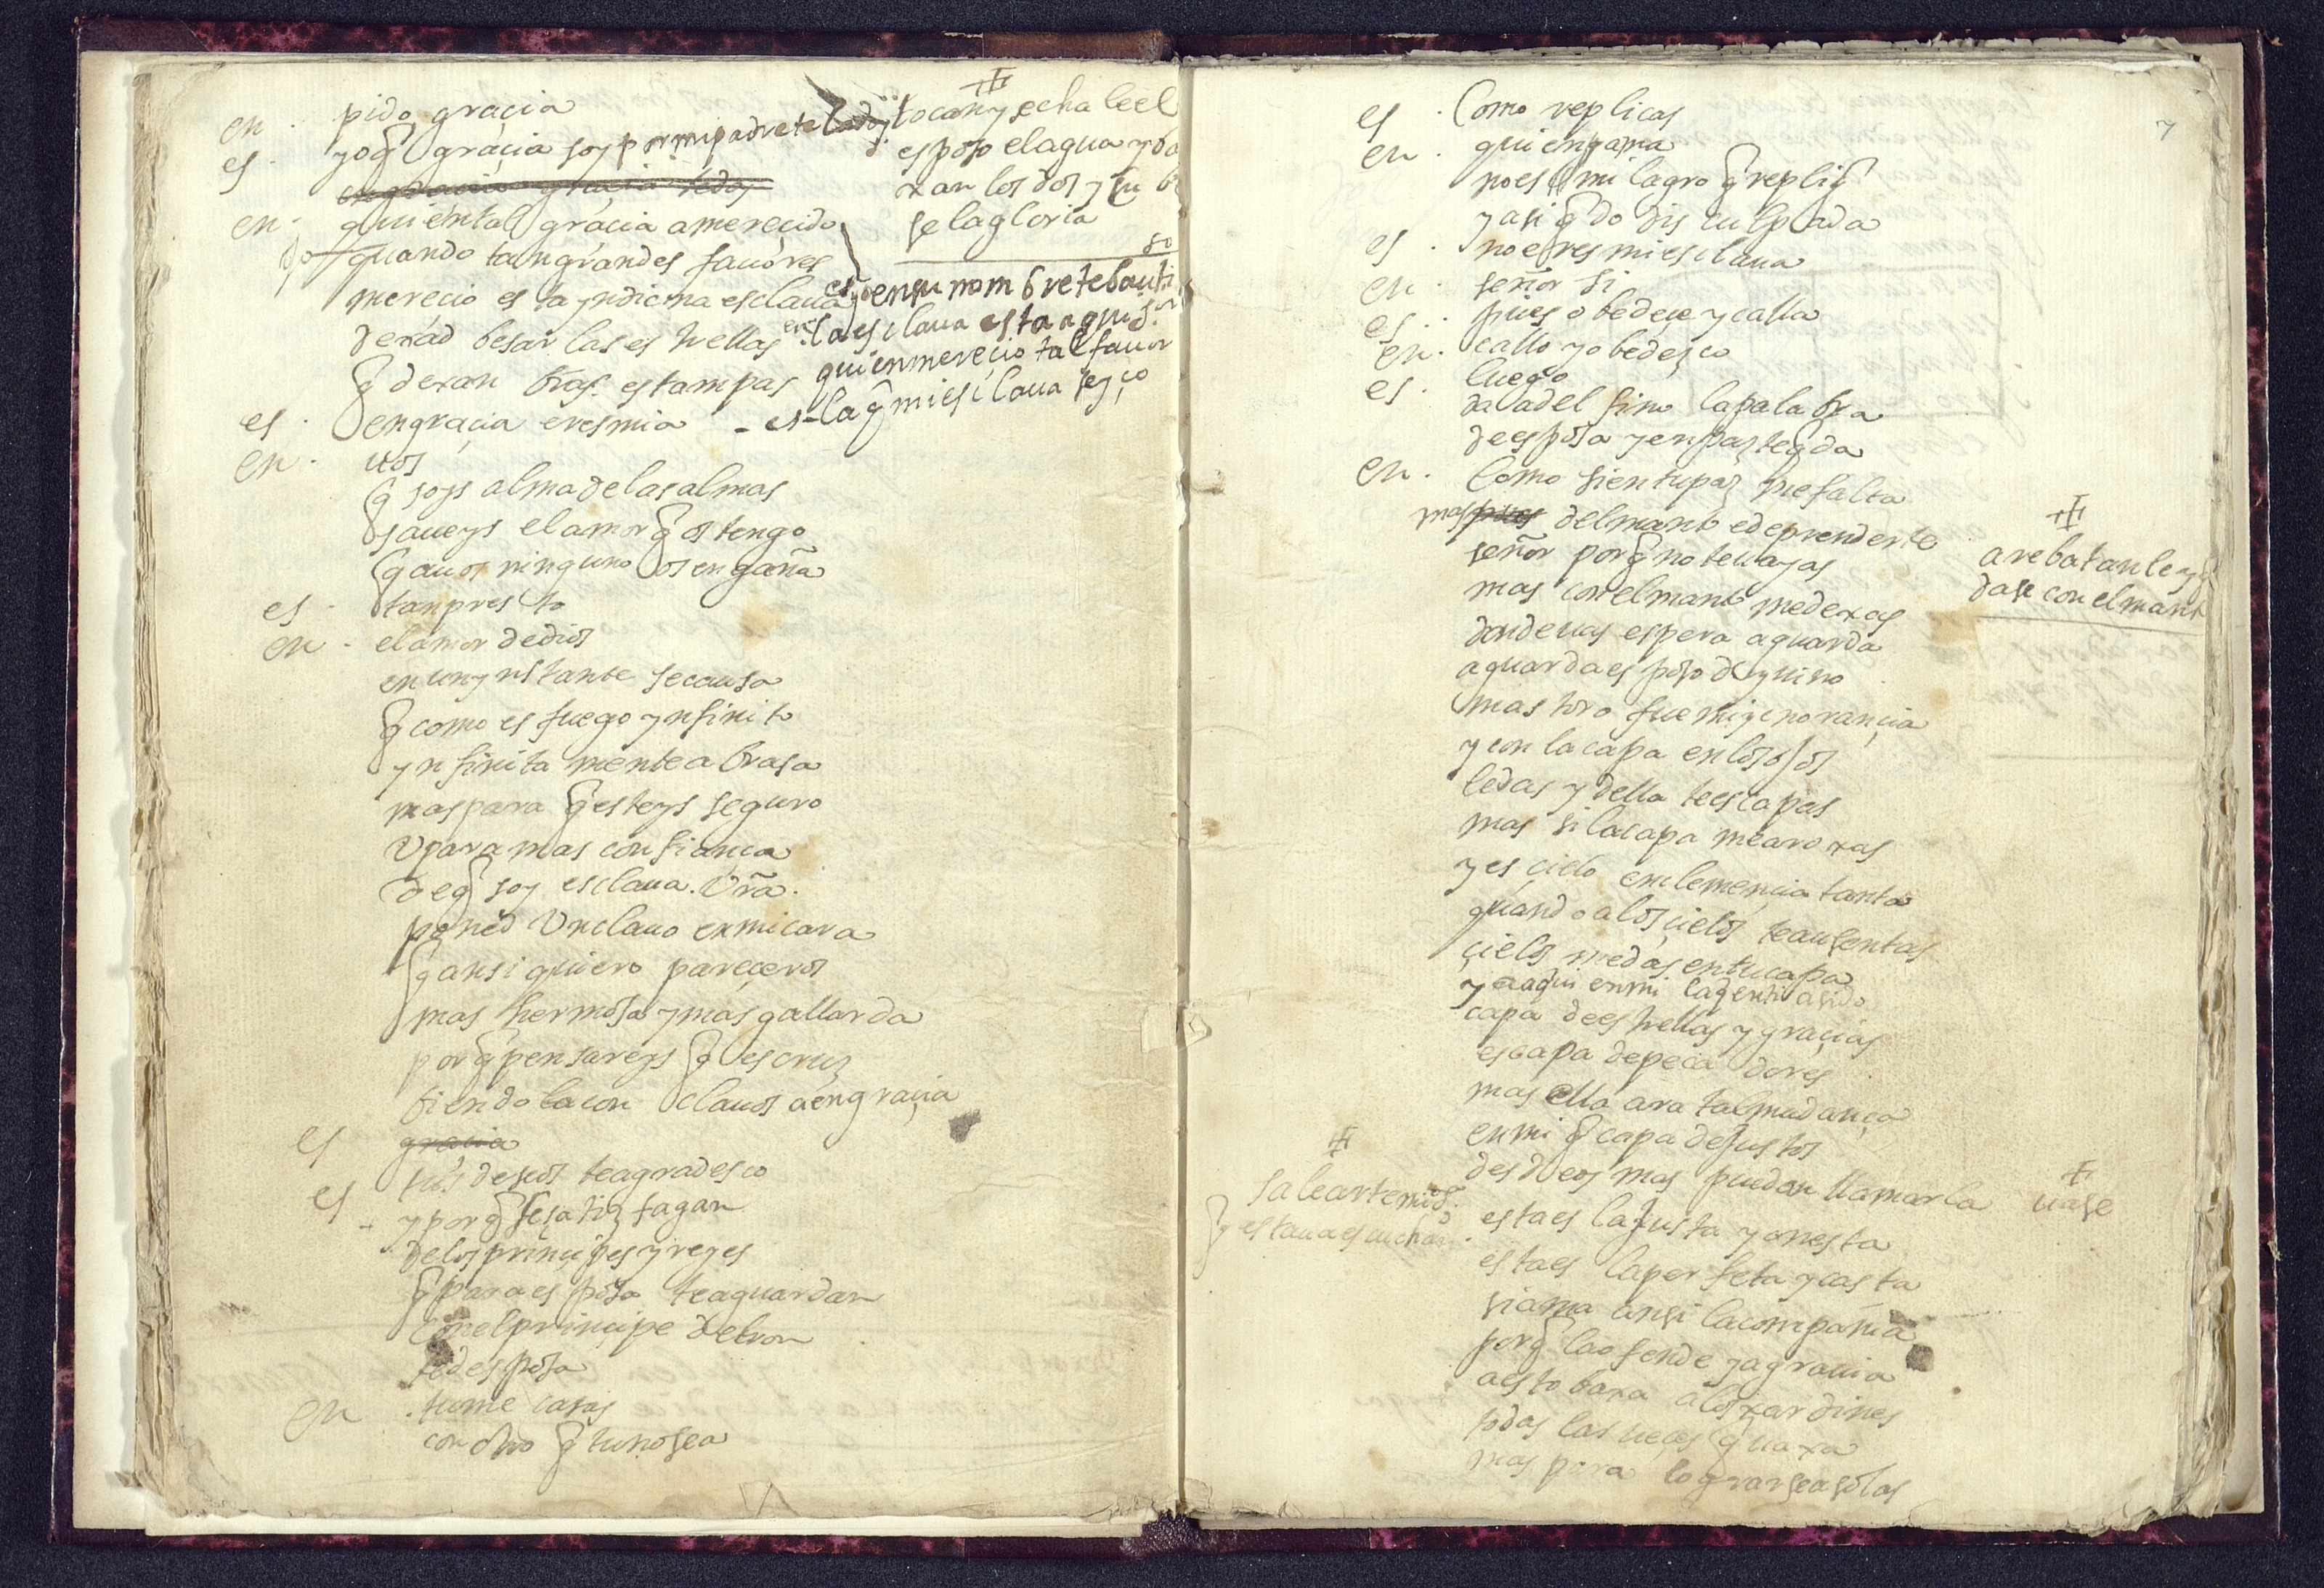 en · pido gracia
es · yo q̃ gracia soy por mi padre te la doy
en · quien tal gracia a merecido
quando tan grandes fauores
merecio esta yndicna esclaua
dexad besar las estrellas
q̃ dexan vras. estampas
es · engracia eres mia
en · uos
q̃ soys alma de las almas
saueys el amor q̃ os tengo
q̃ auos ninguno os engaña
es · tan presto
en · el amor de dios
en un ynstante se causa
q̃ como es fuego ynfinito
ynfinita mente abrasa
mas para q̃ esteys seguro
y para mas confiança
de q̃ soy esclaua. vrã.
poned un clauo en mi cara
q̃ ansi quiero pareceros
mas hermosa y mas gallarda
por q̃ pensareys q̃ es cruz
biendola con clauos a engracia
es gracia
tus deseos te agradesco
es y por q̃ se satiz fagan
de los principes y reyes
q̃ para esposa te aguardan
con el principe de bron
te desposa
en · tu me casas
con otro q̃ tu no sea
tocan y echa le el
esposo el agua y ba
xan los dos y cu br
se la gloria
es yo en su nombre te bauti so
en · la esclaua esta aqui s.or
quien merecio tal fauor
es - la q̃ mi esclaua se yço
7
es · Como replicas
en · quien ama
no es milagro q̃ repliq̃
y asi q̃do disculpada
es · no eres mi esclaua
en · señor si
es · pues obedece y calla
en · callo y obedesco
es · luego
da a delfino la palabra
de esposa y en paz te q̃da
en · Como si en tu paz me falta
mas pues del manto e de prenderte
señor por q̃ no te uayas
mas con el manto me dexas
donde uas espera aguarda
aguarda esposo diuino
mas toro fue mi ygnorancia
y con la capa en los ojos
le das y della te escapas
mas si la capa me aroxas
y es cielo en clemencia tanta
quando a los cielos te ausentas
cielos me das en tu capa
y aqui en mi
capa de estrellas y gracias
es capa de peca dores
mas ella ara tal mudança
en mi q̃ capa de justos
desde oy mas puedan llamarla
esta es la justa y onesta
esta es la perfeta y casta
si ama ansi la compañia
por q̃ la ofende y agrauia
a esto baxa a los xardines
todas las ueces q̃ uaxa
mas para lograrse a solas
arebatanle y q̃
dase con el mant
uase
sale artemidor.
q̃ estaua escuchan